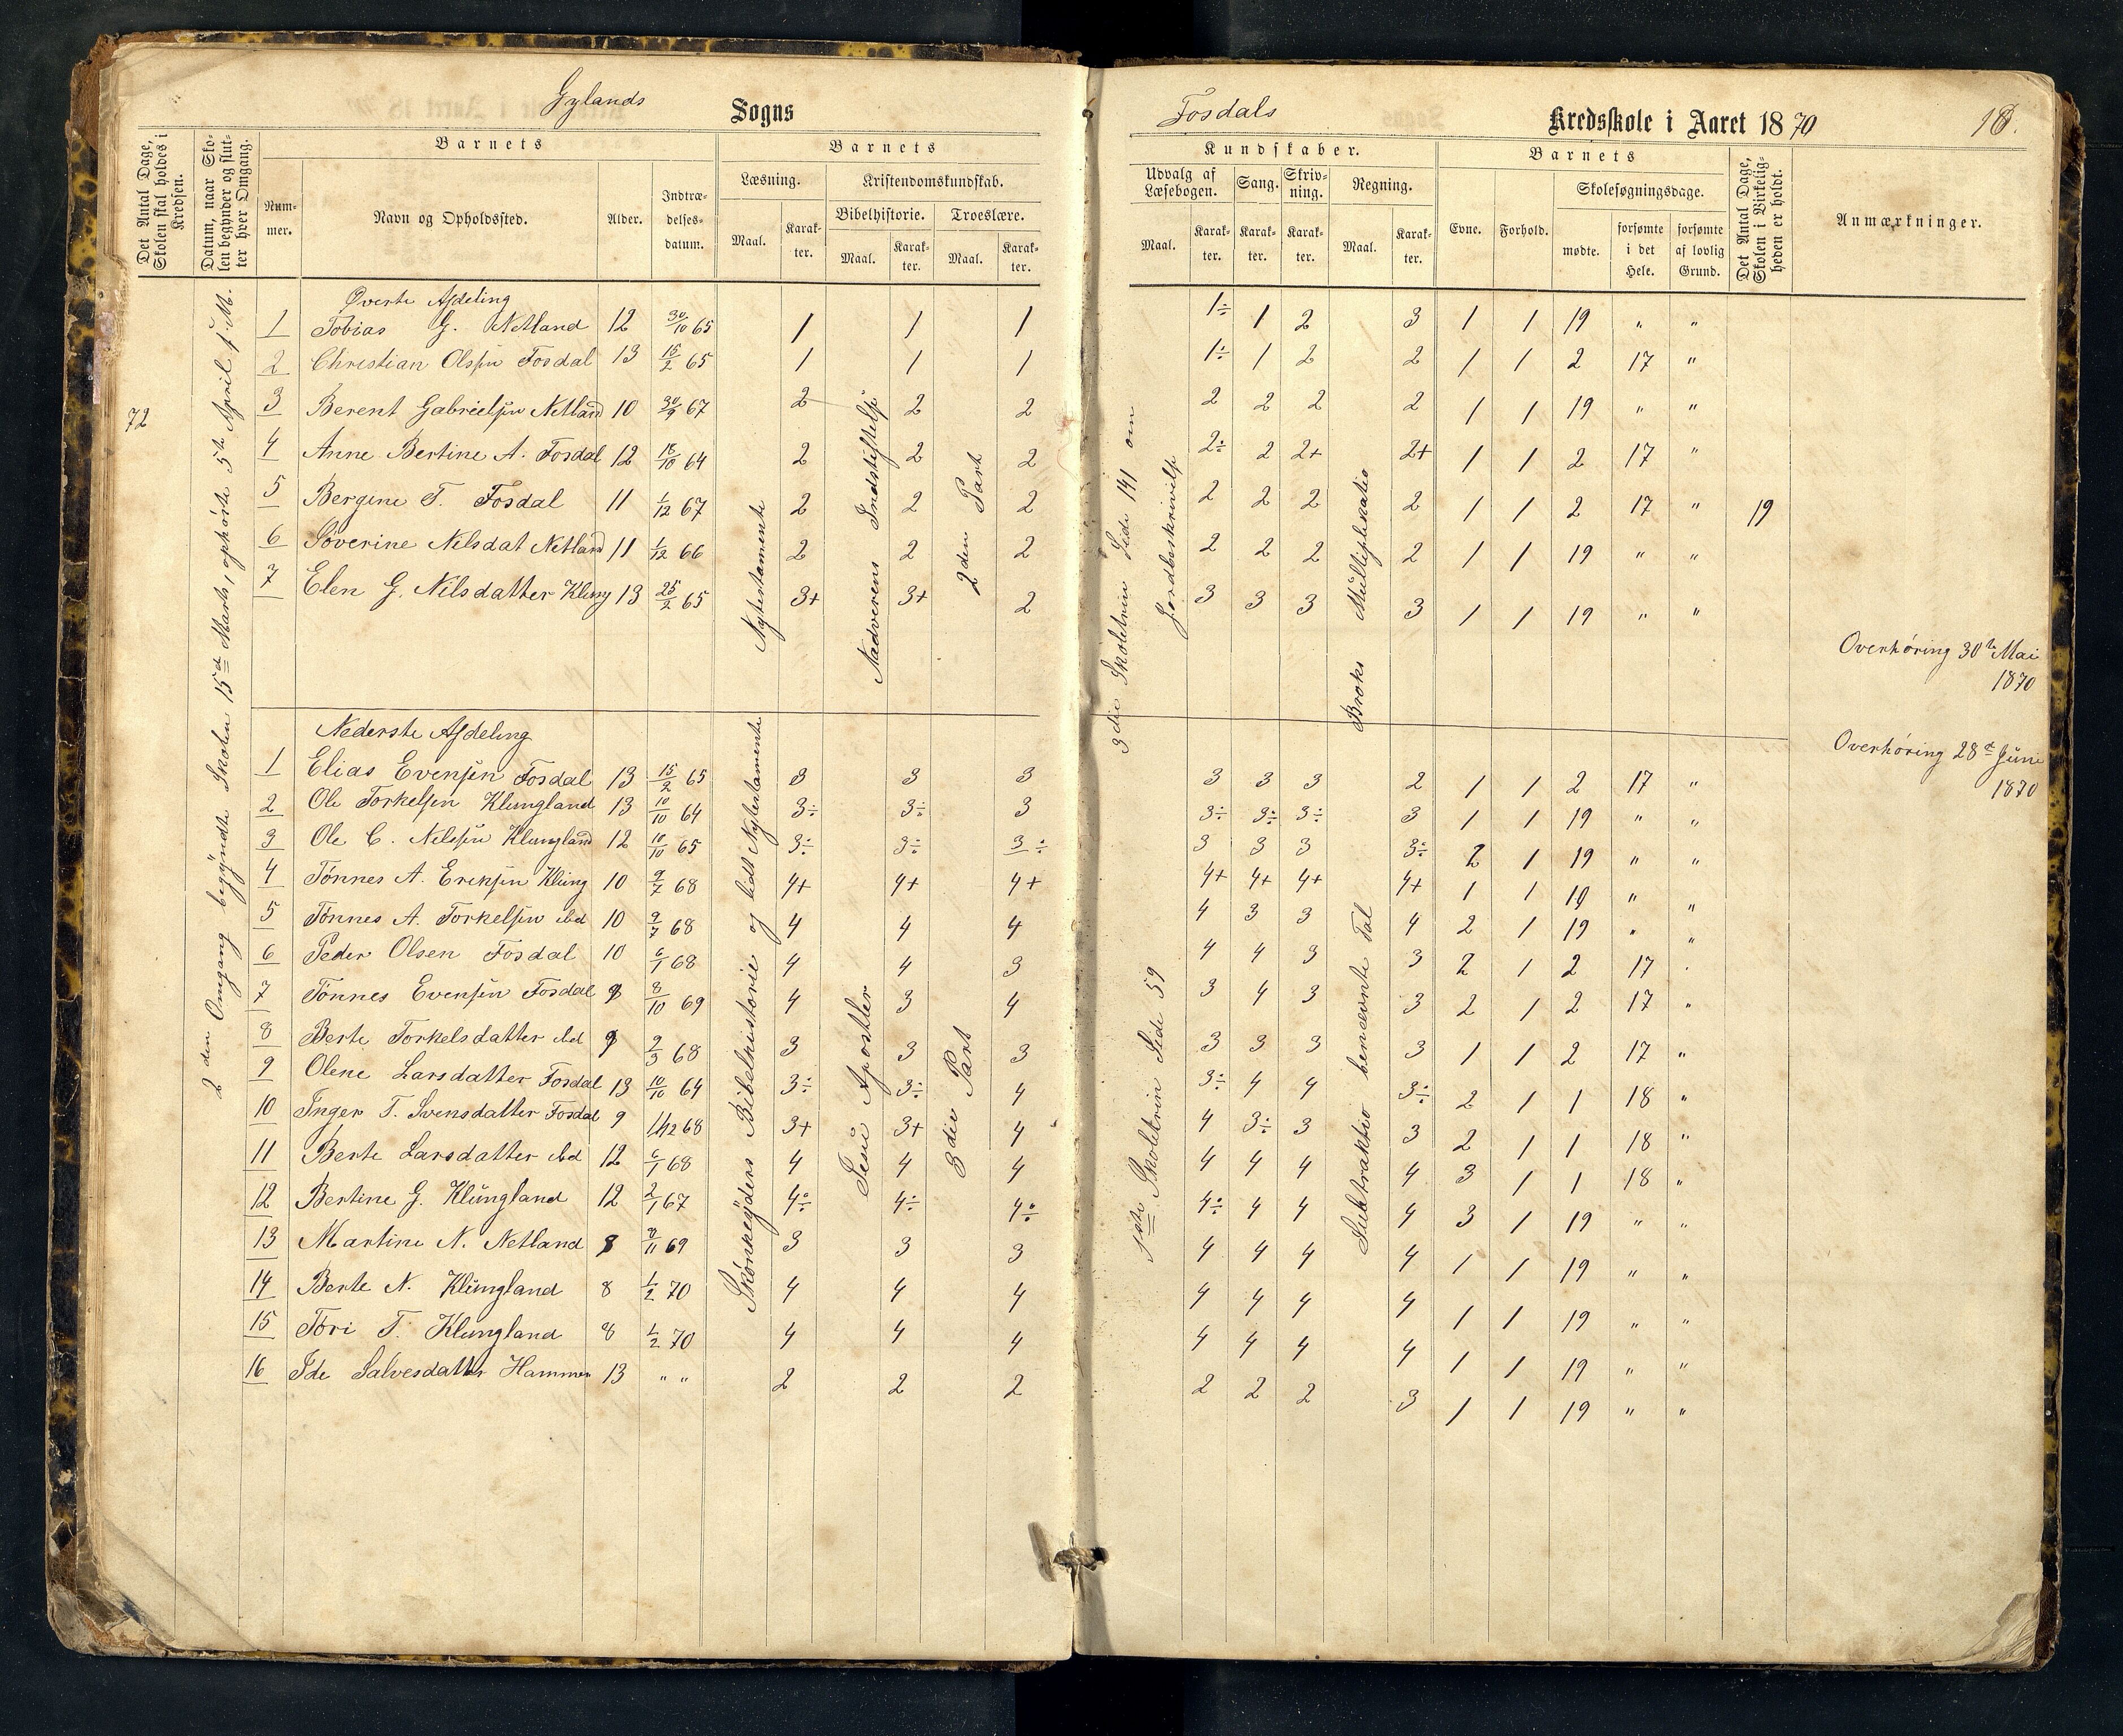 Gylands Sogns
Fosdals Kredsskole i Aaret 1870 18.
Det Antal Dage, Skolen skal holdes i Kredsen.
Datum, naar Skolen begynder og slutter hver Omgang.
Barnets
Nummer.
Navn og Opholdssted.
Alder.
Indtrædelsesdatum.
Barnets
Læsning.
Maal.
Karakter.
Kristendomskundskab.
Bibelhistorie.
Maal.
Karakter.
Troeslære.
Maal.
Karakter.
Kundskaber.
Udvalg af Læsebogen.
Maal.
Karakter.
Sang.
Karakter.
Skrivning.
Karakter.
Regning.
Maal.
Karakter.
Barnets
Evne.
Forhold.
Skolesøgningsdage.
mødte.
forsømte i det Hele.
forsømte af lovlig Grund.
Det Antal Dage, Skolen i Virkeligheden er holdt.
Anmærkninger.
72
2den Omgang begyndte Skolen 15d Marts, ophørte 5te April f. M.
Øverste Afdeling
1 Tobias G. Netland 12 30/10 65 1 1 1 1÷ 1 2 3 1 1 19 " "
2 Christian Olsen Fosdal 13 15/2 65 1 1 1 1÷ 1 2 2 1 1 2 17 "
3 Berent Gabrielsen Netland 10 30/9 67 2 2 2 2 2 2 2 1 1 19 " "
4 Anne Bertine A. Fosdal 12 18/10 64 2 2 2 2÷ 2 2+ 2+ 1 1 2 17 "
5 Bergine T. Fosdal 11 1/12 67 2 2 2 2 2 2 2 1 1 2 17 " 19
6 Søverine Nelsdat Netland 11 1/12 66 2 2 2 2 2 2 2 1 1 19 " "
7 Elen G. Nilsdatter Klung 13 25/2 65 3+ 3+ 2 3 3 3 3 1 1 19 " "
Nytestamente
Nadverens Indstiftelse
2den Part
3die Skoletrin Side 141 om
Jordbeskrivelse
Brøks Multiplikatio
Overhøring 30te Mai
1870
Nederste Afdeling
1 Elias Evensen Fosdal 13 15/2 65 3 3 3 3 3 3 2 1 1 2 17 "
2 Ole Torkelsen Klungland 13 10/10 64 3÷ 3÷ 3 3÷ 3÷ 3÷ 3 1 1 19 " "
3 Ole C. Nelsen Klungland 12 10/10 65 3÷ 3÷ 3÷ 3 3 3 3÷ 2 1 19 " "
4 Tønnes A. Eriksen Klung 10 9/7 68 4+ 4+ 4+ 4+ 4+ 4+ 4+ 1 1 19 " "
5 Tønnes A. Torkelsen ibd 10 9/7 68 4 4 4 4 3 3 4 2 1 19 " "
6 Peder Olsen Fosdal 10 6/1 68 4 4 3 4 4 3 3 2 1 2 17 "
7 Tønnes Evensen Fosdal 9 8/10 69 4 3 4 3 4 3 3 2 1 2 17 "
8 Berte Torkelsdatter ibd 9 9/3 68 3 3 3 3 3 3 3 1 1 2 17 "
9 Olene Larsdatter Fosdal 13 10/10 64 3÷ 3÷ 4 3÷ 4 4 3÷ 2 1 1 18 "
10 Inger T. Svensdatter Fosdal 9 1/12 68 3+ 3+ 4 4 3÷ 3 3 2 1 1 18 "
11 Berte Larsdatter ibd 12 6/1 68 4 4 4 4 4 4 4 3 1 1 18 "
12 Bertine G. Klungland 12 2/1 67 4÷ 4÷ 4÷ 4÷ 4 4 4 3 1 19 " "
13 Martine N. Netland 8 8/11 69 3 3 3 4 4 4 4 1 1 19 " "
14 Berte N. Klungland 8 1/2 70 4 4 4 4 4 4 4 1 1 19 " "
15 Tori T. Klungland 8 1/2 70 4 4 4 4 4 4 4 1 1 19 " "
16 Ide Salvesdatter Hammer 13 " " 2 2 2 2 2 2 3 1 1 19 " "
Skønkeyders Bibelhistorie og lidt Nytestamente
Jesu Apostler
3die Part
1ste Skoletrin Side 59
Subtraktio benævnte Tal
Overhøring 28d Juni
1870